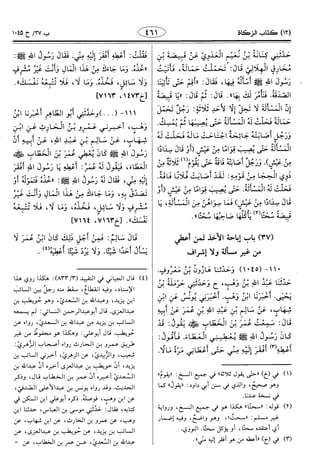 (١٢) كتاب الزكاة
٤٦١
ب ٣٧/ ح ١٠٤٥
حَدَّثَنِي كِنَانَةُ بْنُ نُعَيْمٍ الْعَدَوِيُّ عَنْ قَبِيصَةَ بْنِ
مُخَارِقٍ الْهِلَالِيِّ قَالَ: تَحَمَّلْتُ حَمَالَةً، فَأَتَيْتُ
رَسُولَ اللهِ ﷺ أَسْأَلُهُ فِيهَا، فَقَالَ: «أَقِمْ حَتَّى تَأْتِيَنَا
الصَّدَقَةُ، فَنَأْمُرَ لَكَ بِهَا». قَالَ: ثُمَّ قَالَ: «يَا قَبِيصَةُ
إِنَّ الْمَسْأَلَةَ لَا تَحِلُّ إِلَّا لِأَحَدِ ثَلَاثَةٍ: رَجُلٍ تَحَمَّلَ
حَمَالَةً فَحَلَّتْ لَهُ الْمَسْأَلَةُ حَتَّى يُصِيبَهَا ثُمَّ يُمْسِكُ،
وَرَجُلٍ أَصَابَتْهُ جَائِحَةٌ اجْتَاحَتْ مَالَهُ فَحَلَّتْ لَهُ
الْمَسْأَلَةُ حَتَّى يُصِيبَ قِوَامًا مِنْ عَيْشٍ (أَوْ
قَالَ سِدَادًا مِنْ عَيْشٍ)، وَرَجُلٍ أَصَابَتْهُ فَاقَةٌ حَتَّى يَقُومَ(١) ثَلَاثَةٌ مِنْ
ذَوِي الْحِجَا مِنْ قَوْمِهِ: لَقَدْ أَصَابَتْ فُلَانًا فَاقَةٌ،
فَحَلَّتْ لَهُ الْمَسْأَلَةُ، حَتَّى يُصِيبَ قِوَامًا مِنْ عَيْشٍ (أَوْ
قَالَ سِدَادًا مِنْ عَيْشٍ) فَمَا سِوَاهُنَّ مِنَ الْمَسْأَلَةِ، يَا
قَبِيصَةُ سُحْتًا(٢) يَأْكُلُهَا صَاحِبُهَا سُحْتًا».
(٣٧) باب إباحة الأخذ لمن أعطي
من غير مسألة ولا إشراف
١١٠-(١٠٤٥) وحَدَّثَنَا هَارُونُ بْنُ مَعْرُوفٍ.
حَدَّثَنَا عَبْدُ اللهِ بْنُ وَهْبٍ، ح وَحَدَّثَنِي حَرْمَلَةُ بْنُ
يَحْيَى. أَخْبَرَنَا ابْنُ وَهْبٍ. أَخْبَرَنِي يُونُسُ عَنِ ابْنِ
شِهَابٍ، عَنْ سَالِمِ بْنِ عَبْدِ اللهِ بْنِ عُمَرَ عَنْ أَبِيهِ
قَالَ: سَمِعْتُ عُمَرَ بْنَ الْخَطَّابِ يَقُولُ: قَدْ
كَانَ رَسُولُ اللهِ ﷺ يُعْطِينِي الْعَطَاءَ، فَأَقُولُ:
أَعْطِهِ(٣) أَفْقَرَ إِلَيْهِ مِنِّي حَتَّى أَعْطَانِي مَرَّةً مَالًا.
(١) في (خ) «حتى يقول ثلاثة» في جميع النسخ: «يقوم»
وهو صحيح، والذي في سنن أبي داود: «يقول» كما
في نسخة عندنا.
(٢) قوله: «سحتًا» هكذا هو في جميع النسخ، ورواية
غير مسلم: «سحت» وهو واضح، وفيه إضمار
أي أعتقده سحتًا، أو يؤكل سحتًا. النووي.
(٣) في (خ) «أعطه من هو أفقر إليه مني».
فَقُلْتُ: أَعْطِهِ أَفْقَرَ إِلَيْهِ مِنِّي. فَقَالَ رَسُولُ اللهِ ﷺ:
«خُذْهُ. وَمَا جَاءَكَ مِنْ هَذَا الْمَالِ وَأَنْتَ غَيْرُ مُشْرِفٍ
وَلَا سَائِلٍ، فَخُذْهُ. وَمَا لَا، فَلَا تُتْبِعْهُ نَفْسَكَ».
[خ١٤٧٣، ٧١٦٣]
١١١-(...) وحَدَّثَنِي أَبُو الطَّاهِرِ أَخْبَرَنَا ابْنُ
وَهْبٍ، أَخْبَرَنِي عَمْرُو بْنُ الْحَارِثِ عَنِ ابْنِ
شِهَابٍ، عَنْ سَالِمِ بْنِ عَبْدِ اللهِ، عَنْ أَبِيهِ أَنَّ
رَسُولَ اللهِ ﷺ كَانَ يُعْطِي عُمَرَ بْنَ الْخَطَّابِ
الْعَطَاءَ، فَيَقُولُ لَهُ عُمَرُ: أَعْطِهِ يَا رَسُولَ اللهِ أَفْقَرَ
إِلَيْهِ مِنِّي، فَقَالَ لَهُ رَسُولُ اللهِ ﷺ: «خُذْهُ فَتَمَوَّلْهُ أَوْ
تَصَدَّقْ بِهِ، وَمَا جَاءَكَ مِنْ هَذَا الْمَالِ وَأَنْتَ غَيْرُ
مُشْرِفٍ وَلَا سَائِلٍ، فَخُذْهُ، وَمَا لَا، فَلَا تُتْبِعْهُ
نَفْسَكَ». [خ٧١٦٣، ٧١٦٤]
قَالَ سَالِمٌ: فَمِنْ أَجْلِ ذَلِكَ كَانَ ابْنُ عُمَرَ لَا
يَسْأَلُ أَحَدًا شَيْئًا. وَلَا يَرُدُّ شَيْئًا أُعْطِيَهُ(٤).
(٤) قال الجياني في التقييد (٨٣٣/٣): هكذا روي هذا
الإسناد، وفيه انقطاع، سقط منه رجل بين السائب
ابن يزيد، وعبدالله بن السَّعدي، وهو حُويطب بن
عبدالعزى. قال أبوعبدالرحمن النسائي: لم يسمعه
السائب بن يزيد من عبدالله بن السعدي، رواه عن
حويطب. قال أبوعلي: وهكذا هو محفوظ من غير
طريق عمرو بن الحارث رواه أصحاب الزُّهريِّ:
شعيب، والزُّبيدي، عن الزهري، أخبرني السائب بن
يزيد، أنَّ حويطب بن عبدالعزى أخبره أنَّ عبدالله بن
السَّعدي أخبره أنَّ عمر بن الخطاب قال، وذكر
الحديث. وقد رواه يونس بن عبدالأعلى الصَّدفي،
عن ابن وهب، فوصله. ذكره أبوعلي ابن السكن في
كتابه، فقال:
وهب، عن عمرو بن الحارث، عن ابن شهاب، عن
السائب بن يزيد عن حويطب بن عبدالعزى، عن
عبدالله بن السَّعدي، عن عمر بن الخطاب، عن -